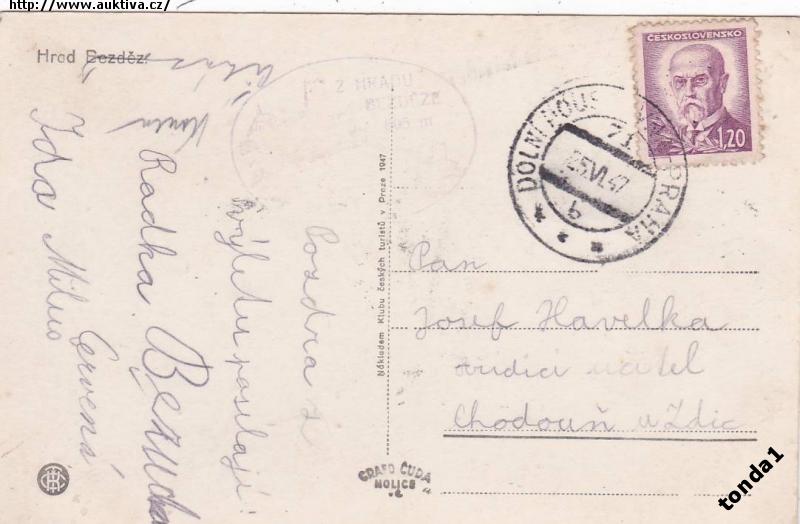 http://www.auktiva.cz/
Hrad Bezděz
Z HRADU
BEZDĚZE
Pozdrav z
výletu posílají
Radka
Ida
Milus
Červená
Nákladem Klubu českých turistů v Praze 1947
ČESKOSLOVENSKO
1,20
DOLNÍ BOUS
PRAHA
71
25.VI.47
b
Pan
Josef Havelka
řídící učitel
Chodouň u Zdic
GRAFO ČUDA
HOLICE
tonda1